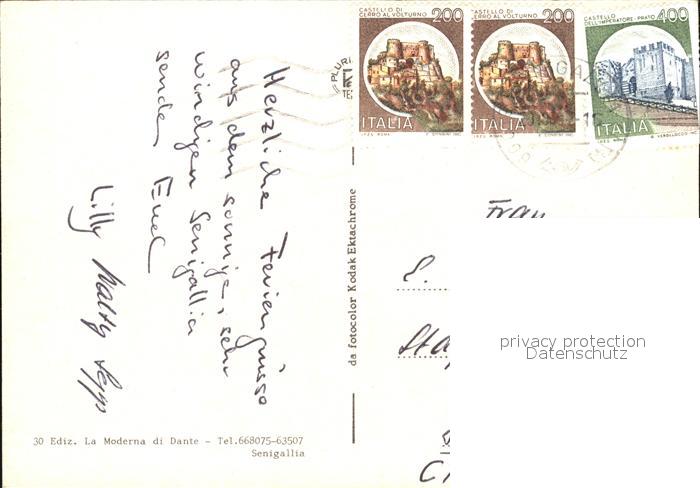 CASTELLO DI
CERRO AL VOLTURNO 200
ITALIA
CASTELLO DI
CERRO AL VOLTURNO 200
ITALIA
CASTELLO
DELL'IMPERATORE-PRATO 400
ITALIA
Herzliche Feriengrüsse
aus dem sonnigen, sehr
windigen Senigallia
senden Euch
Lilly Walty Sepp
da fotocolor Kodak Ektachrome
Frau
E.
privacy protection
Datenschutz
30 Ediz. La Moderna di Dante - Tel.668075-63507
Senigallia